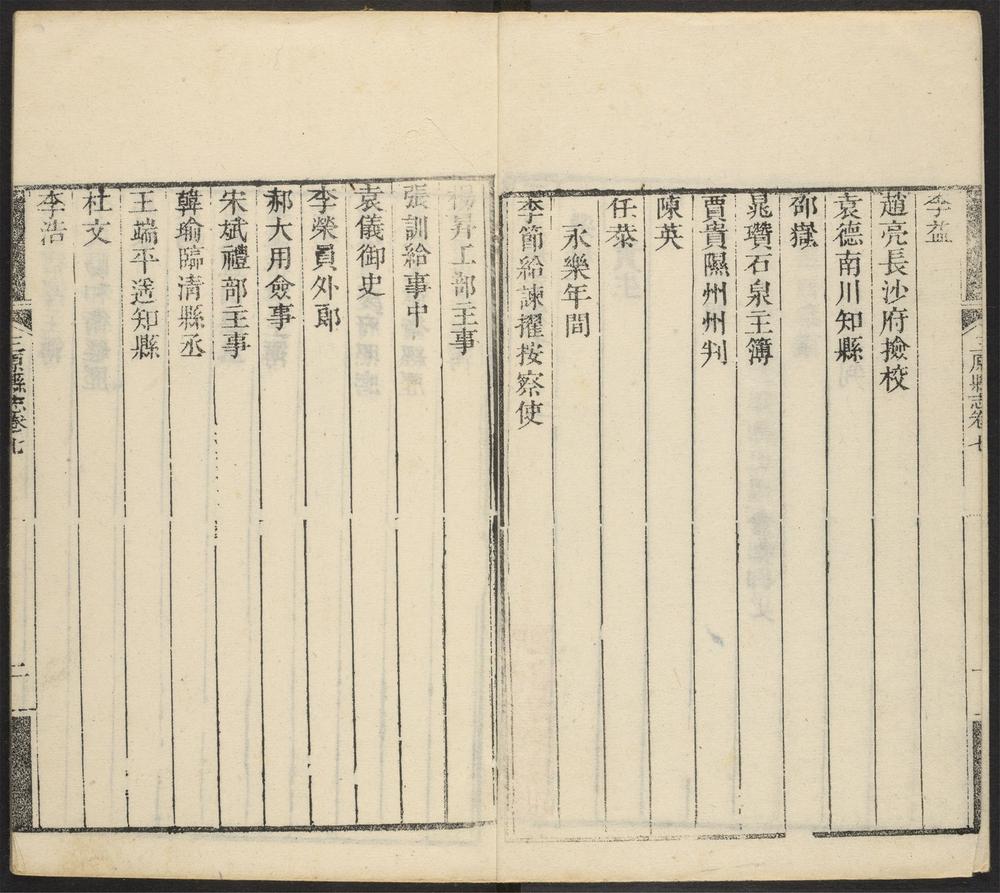 三原縣志卷七
李益
趙亮長沙府撿校
袁德南川知縣
邵嶽
晁瓚石泉主簿
賈貴隰州州判
陳英
任恭
永樂年間
李節給諫擢按察使
楊昇工部主事
張訓給事中
袁儀御史
李榮員外郎
郝大用僉事
宋斌禮部主事
韓瑜臨清縣丞
王端平遙知縣
杜文
李浩
三原縣志卷七
二